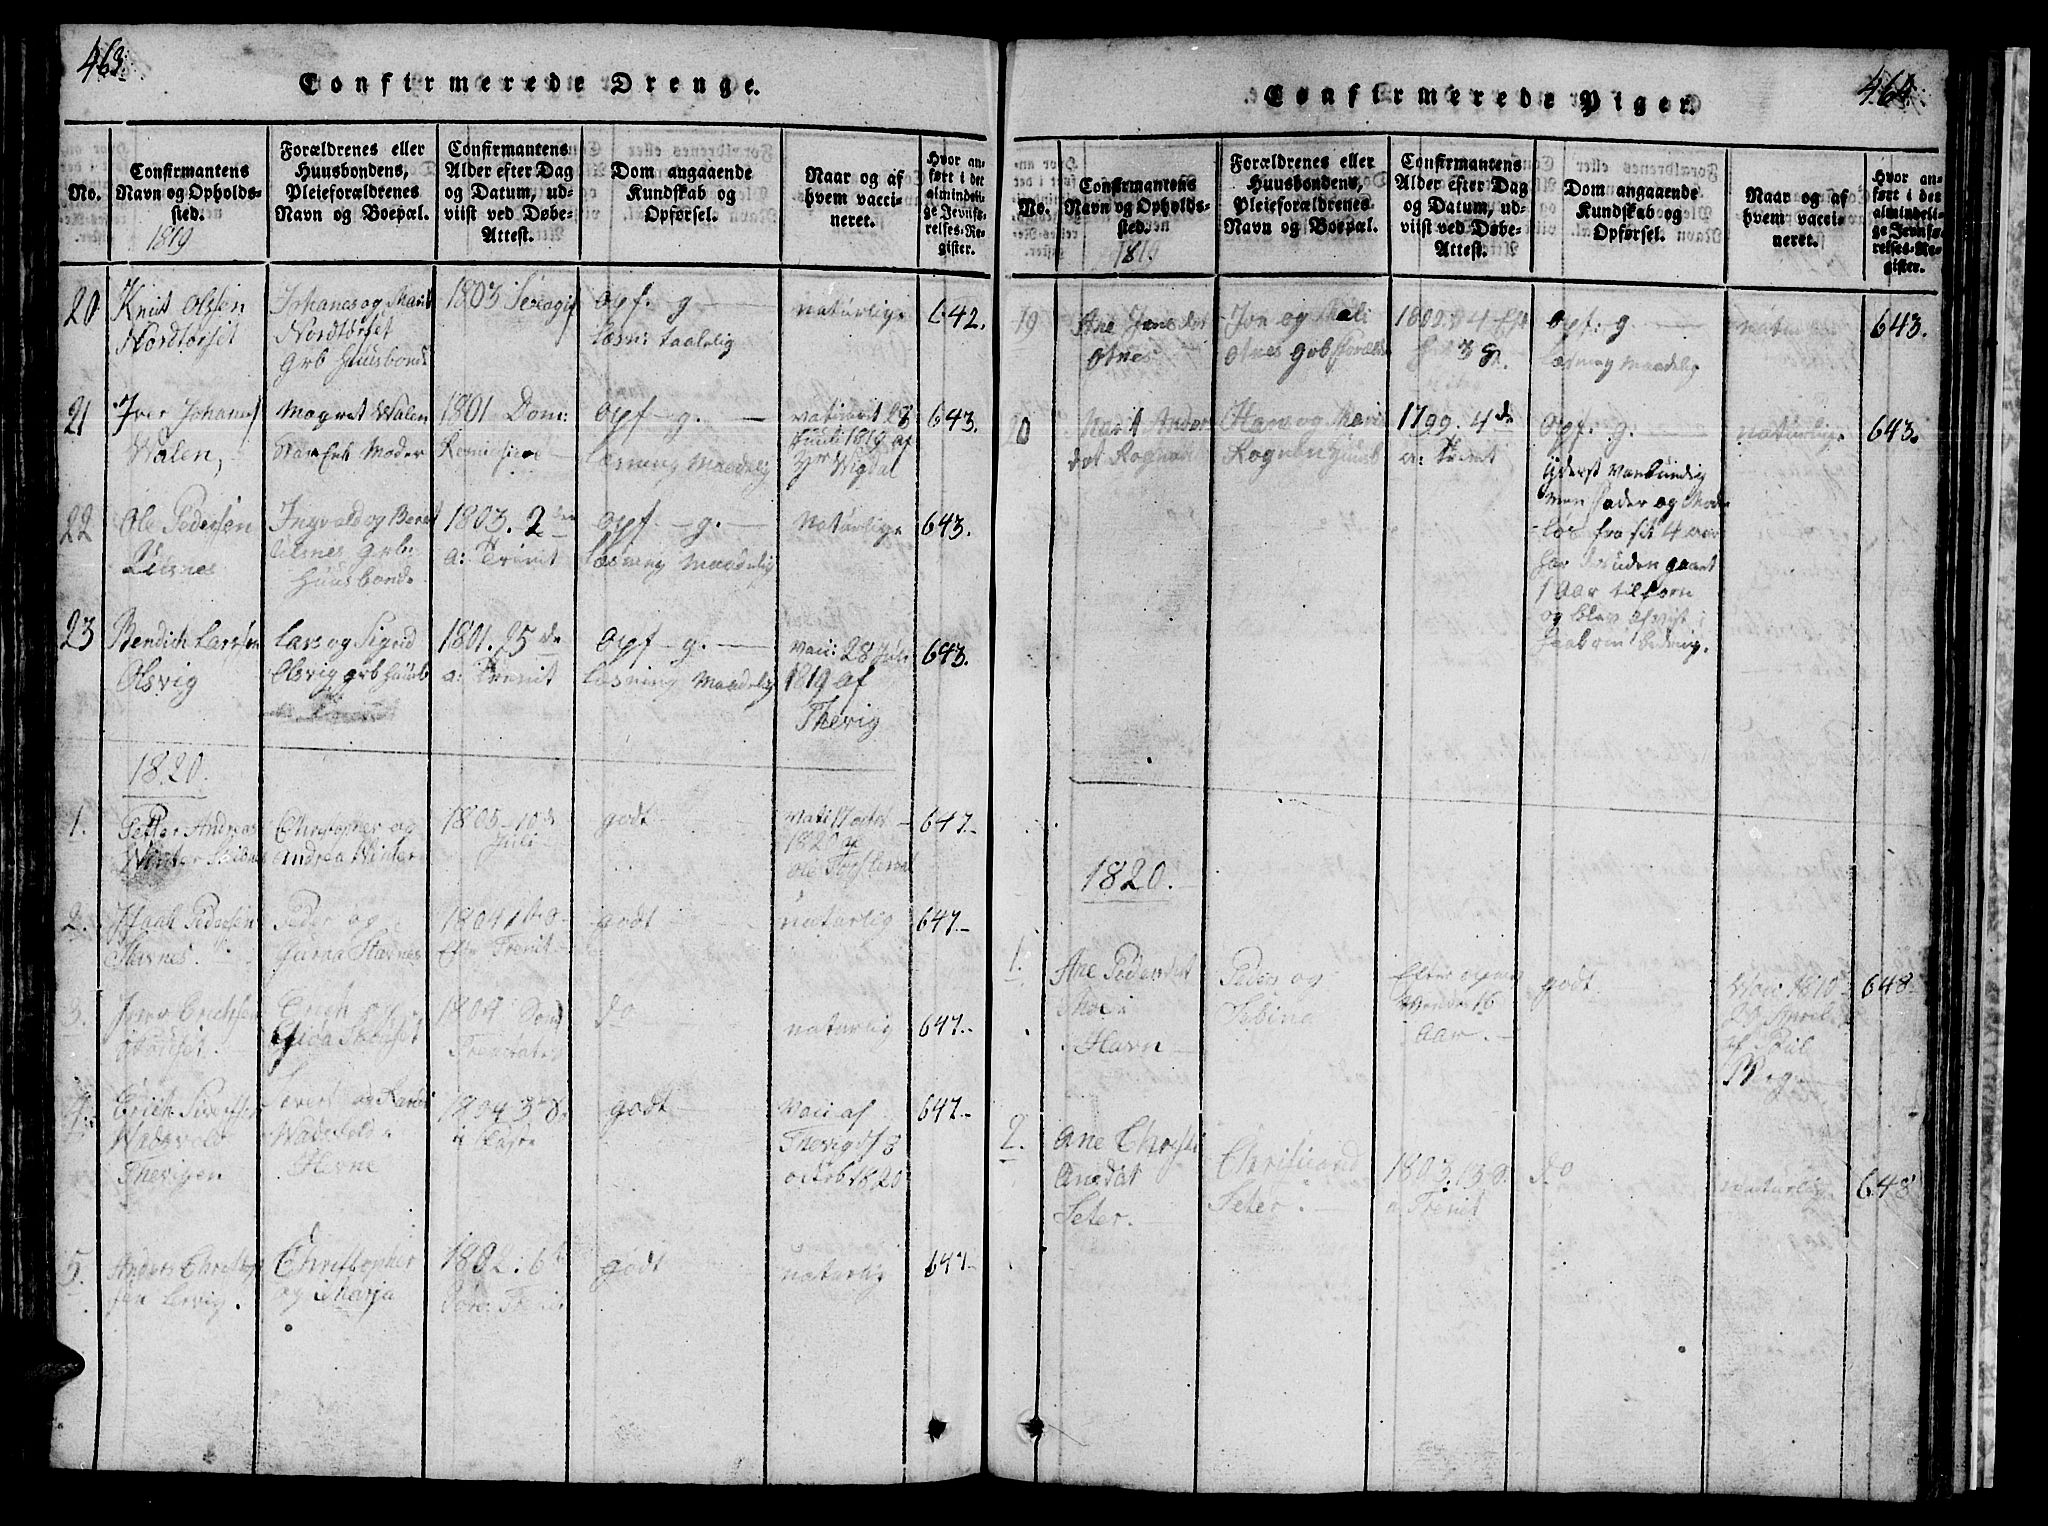 463.
Confirmerede Drenge.
No.
Confirmantens
Navn og Opholds-
sted.
1819
Forældrenes eller
Huusbondens,
Pleieforældrenes
Navn og Boepæl.
Confirmantens
Alder efter Dag
og Datum, ud-
viist ved Døbe-
Attest.
Dom angaaende
Kundskab og
Opførsel.
Naar og af
hvem vacci-
neret.
Hvor an-
ført i det
almindeli-
ge Jevnfø-
relses-Re-
gister.
20
Knut Olssen
Nordtørset
Johanes og Marit
Nordtørset
Grb Huusbond
1803 Sexagis
Opf. g.
Læsn: taalelig
naturlige
642.
21
Iver Johans
Walen,
Magret Walen
Moder
1801 Dom:
Opf - g. -
Læsning Maadelig
28
Juli 1819 af
Hr Wigdal
643.
22
Ole Pedersen
Ingvald og Beret
grb:
Huusbond
1803. 2den
a: Trinit
Opf - g. -
Læsning Maadelig
Naturlige
643.
23
Bendich Larssen
Olsvig
Lars og Sigrid
Olsvig grb Huusb
1801. 25 de
a: Trinit
Opf - g. -
Læsning Maadelig
vaci: 28 Juli
1819 af
Thevig
643.
1820.
1.
Petter Andreas
Winter
Christopher og
Andrea Winter
1805 - 10 d
Juli
godt
Vaci 17 octbr
1820 af
Ole
647.
2.
Isaak Pedersen
Stavnes.
Peder og
Gurva Stavnes
1804
Efter Trenit
godt
naturlig
647.
3.
Iver Erichsen
Erich og
1804
do
naturlig
647.
4.
Erich Pedersen
Wadevold
Thevigen
Sivert og Karen
Hevne
1804 3 d
godt
Vaci af
Thevig d 18
octob 1820
647.
5.
Anders Christop
sen Lervig.
Christopher
og Marja
1802. 6
godt
naturlig
647.
464.
Confirmerede Piger.
No.
Confirmantens
Navn og Opholds-
sted.
1819
Forældrenes eller
Huusbondens,
Pleieforældrenes
Navn og Boepæl.
Confirmantens
Alder efter Dag
og Datum, ud-
viist ved Døbe-
Attest.
Dom angaaende
Kundskab og
Opførsel.
Naar og af
hvem vacci-
neret.
Hvor an-
ført i det
almindeli-
ge Jevnfø-
relses-Re-
gister.
19
Ane Jonsdat
Otnes
Jon og Mali
Otnes grb Foræld
1802. 4
Opf: g.
Læsning Maadelig
643.
20
Marit Anders
dat Rognen
Hans og Marit
Rognen Huusb
1799. 4de
a: Trinit
Opf. g.
yderst vankundig
Men Fader og Moder
løs fra sit 4 aar
har desuden gaaet
1 Aar tilforn
og blev afvist i
Haab om bedring.
naturlige
643.
1820.
1.
Ane Pedersdat
Havn
Peder og
Sebine
Efter
16
aar.
godt.
Vaci 1810
20 April
af
Berg
648
2.
Ane Christi
ansdat
Seter.
Christian
Seter.
1803. 13 S.
a Trenit
do
naturlig
648